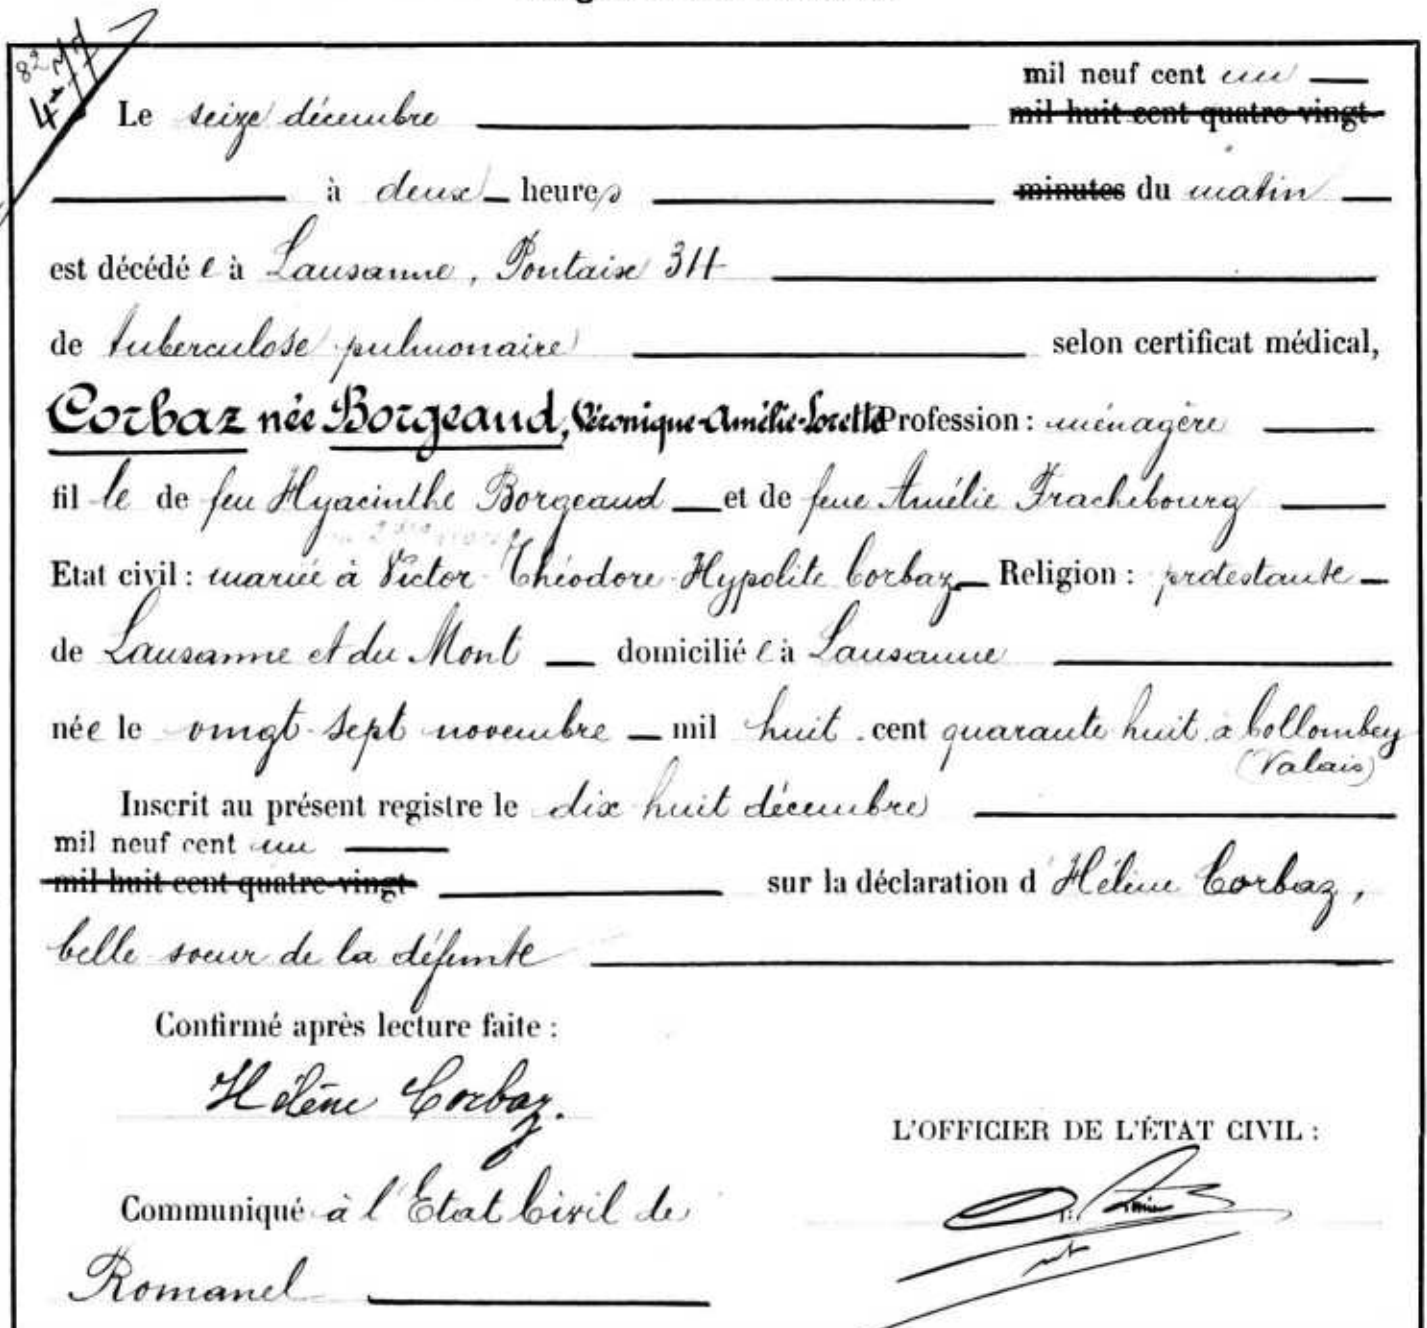 Le seize décembre mil neuf cent un
mil huit cent quatre vingt-
à deux heures minutes du matin
est décédée à Lausanne, Pontaise
de tuberculose pulmonaire selon certificat médical,
Corbaz née Borgeaud, Véronique-Amélie-Lorette Profession : ménagère
fille de feu Hyacinthe Borgeaud et de feue Amélie Frachebourg
Etat civil : mariée à Victor-Théodore-Hypolite Corbaz Religion : protestante
de Lausanne et du Mont domiciliée à Lausanne
née le vingt-sept novembre mil huit cent quarante huit à Collombey
(Valais)
Inscrit au présent registre le dix huit décembre
mil neuf cent un
mil huit cent quatre-vingt- sur la déclaration d'Hélène Corbaz,
belle soeur de la défunte
Confirmé après lecture faite :
Hélène Corbaz.
L'OFFICIER DE L'ÉTAT CIVIL :
Communiqué à l'Etat Civil de
Romanel